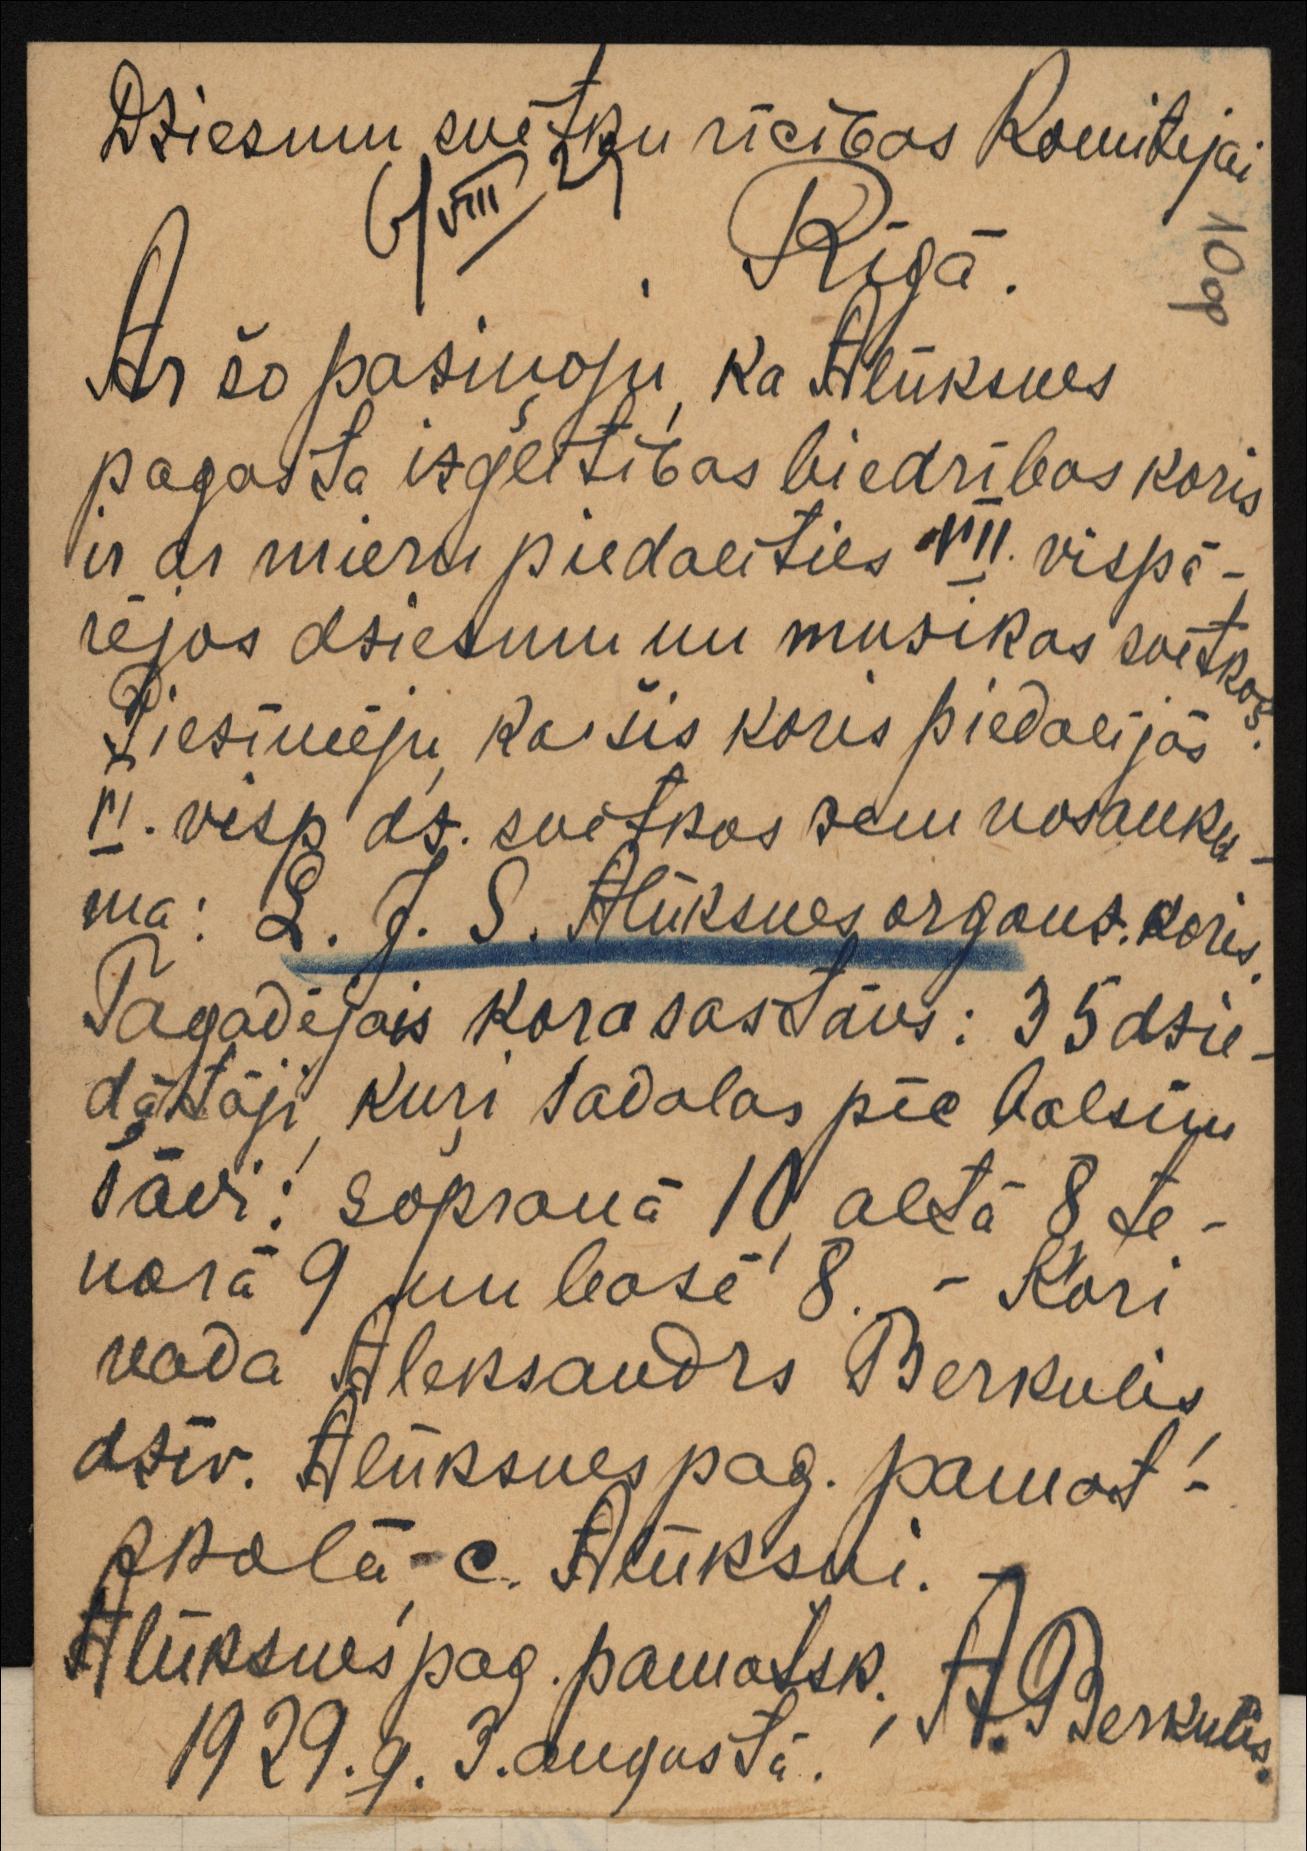 Dziesmu svētku rīcības Komitejai
6/VIII 29
Rīgā.
10 op
Ar šo paziņoju, ka Alūksnes
pagasta izglītības biedrības koris
ir ar mieru piedalīties VII. vispā-
rējos dziesmu un muzikas svētkos.
Piezīmēju, ka šis koris piedalījās
VI. visp dz. svētkos zem nosauku-
ma: L. J. S. Alūksnes organiz. koris.
Tagadējais kora sastāvs: 35 dzie-
dātāji, kuŗi sadalas pēc balsīm
šādi: soprānā 10, altā 8, te-
norā 9 un basā 8. - Kori
vada Aleksandrs Berkulis,
dzīv. Alūksnes pag. pamat-
skolā, c. Alūksni.
Alūksnes pag. pamatsk.,
A. Berkulis.
1929. g. 3. augustā.